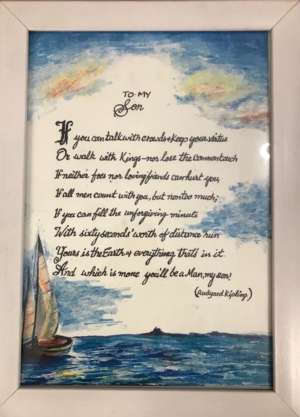 TO MY
Son
If you can talk with crowds & keep your virtue
Or walk with Kings-nor lose the common touch
If neither foes nor loving friends can hurt you
If all men count with you, but none too much;
If you can fill the unforgiving minute
With sixty seconds' worth of distance run
Yours is the Earth & everything that's in it
And which is more you'll be a Man, my son!
(Rudyard Kipling)